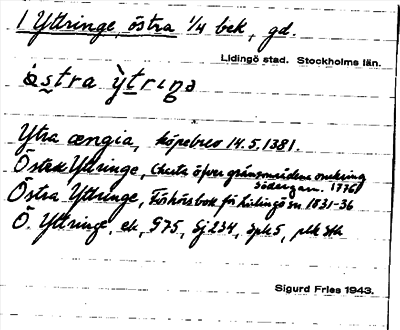 1 Yttringe, östra 1/4 bek, gd.
Lidingö stad. Stockholms län.
östra ỳtrıŋə
Ytra ængia, köpebrev 14.5.1381.
Östra Yttringe, Charta öfver gränsområdena omkring
1776
Östra Yttringe, Förhörsbok för Lidingö sn 1831-36
Ö. Yttringe, ek, G75, Sj234, Spk5,
Sigurd Fries 1943.